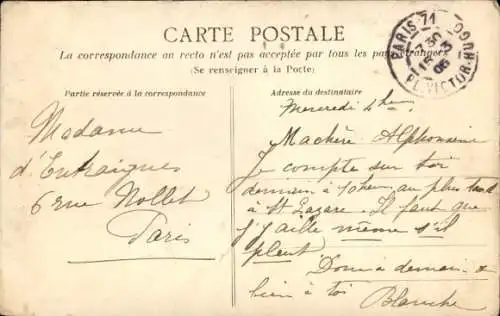 CARTE POSTALE
La correspondance au recto n'est pas acceptée par tous les pays étrangers
(Se renseigner à la Poste)
Partie réservée à la correspondance
Adresse du destinataire
PARIS 71
7 30
15 3
05
PL. VICTOR HUGO
Madame
d'Entraigues
6 rue Nollet
Paris
Mercredi
Ma chère Alphonsine
Je compte sur toi
demain à au plus tard
à St Lazare. Il faut que
j'y aille même s'il
pleut
Donc à demain &
bien à toi Blanche